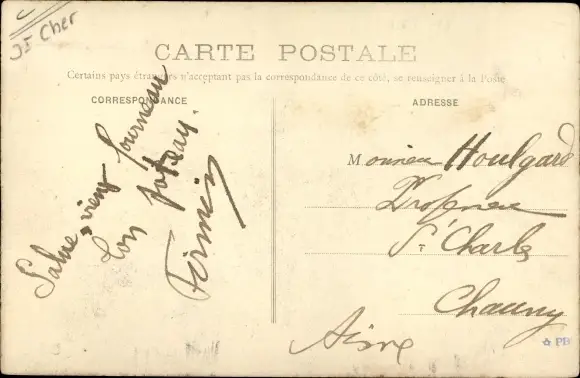 35 Cher
CARTE POSTALE
Certains pays étrangers n'acceptant pas la correspondance de ce côté, se renseigner à la Poste
CORRESPONDANCE
Salue, vieux fourneau
Ton poteau.
Firmin
ADRESSE
Monsieur Houlgard
Professeur
St Charles
Chauny
Aisne
PB